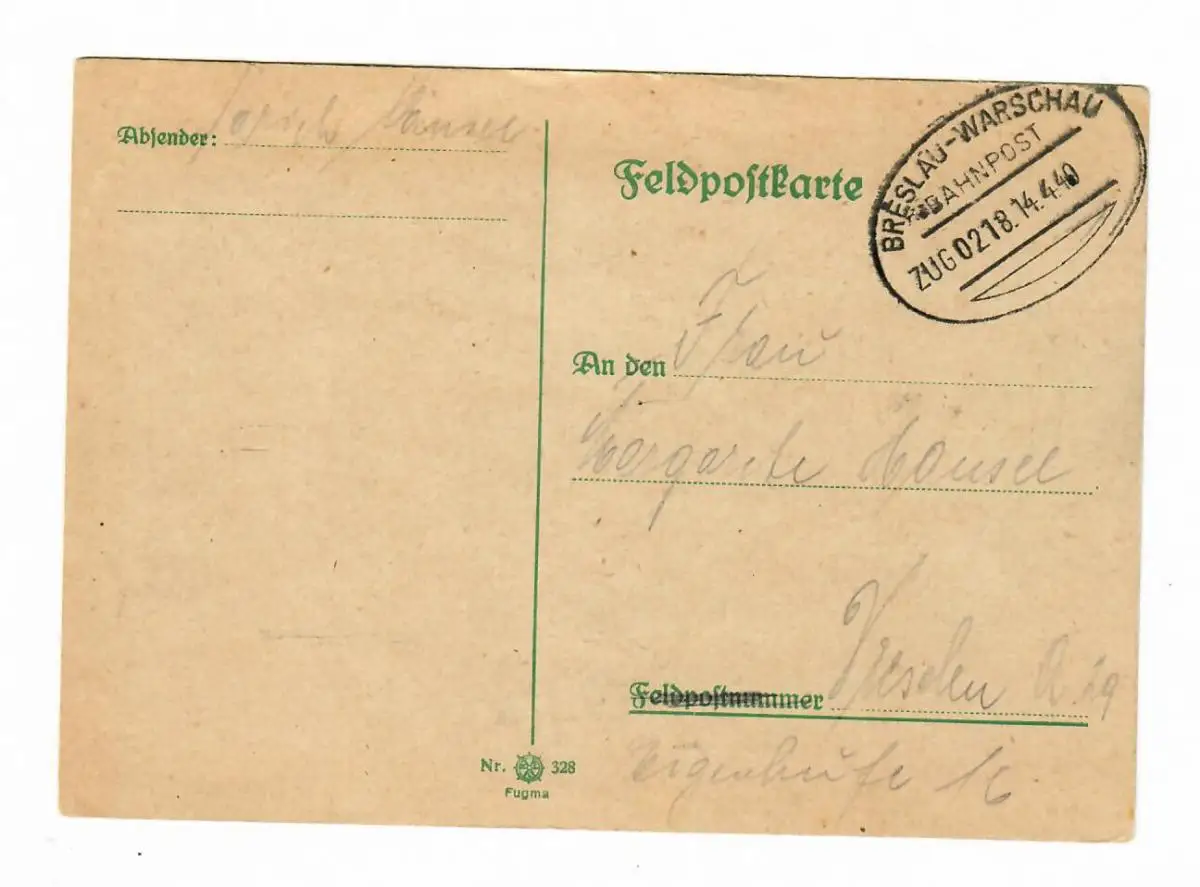 Absender: Hänsel
Feldpostkarte
BRESLAU-WARSCHAU
BAHNPOST
ZUG 0218. 14.4.40
An den Frau
Margarete Hänsel
Feldpostnummer Dresden A 29
16
Nr. 328
Fugma